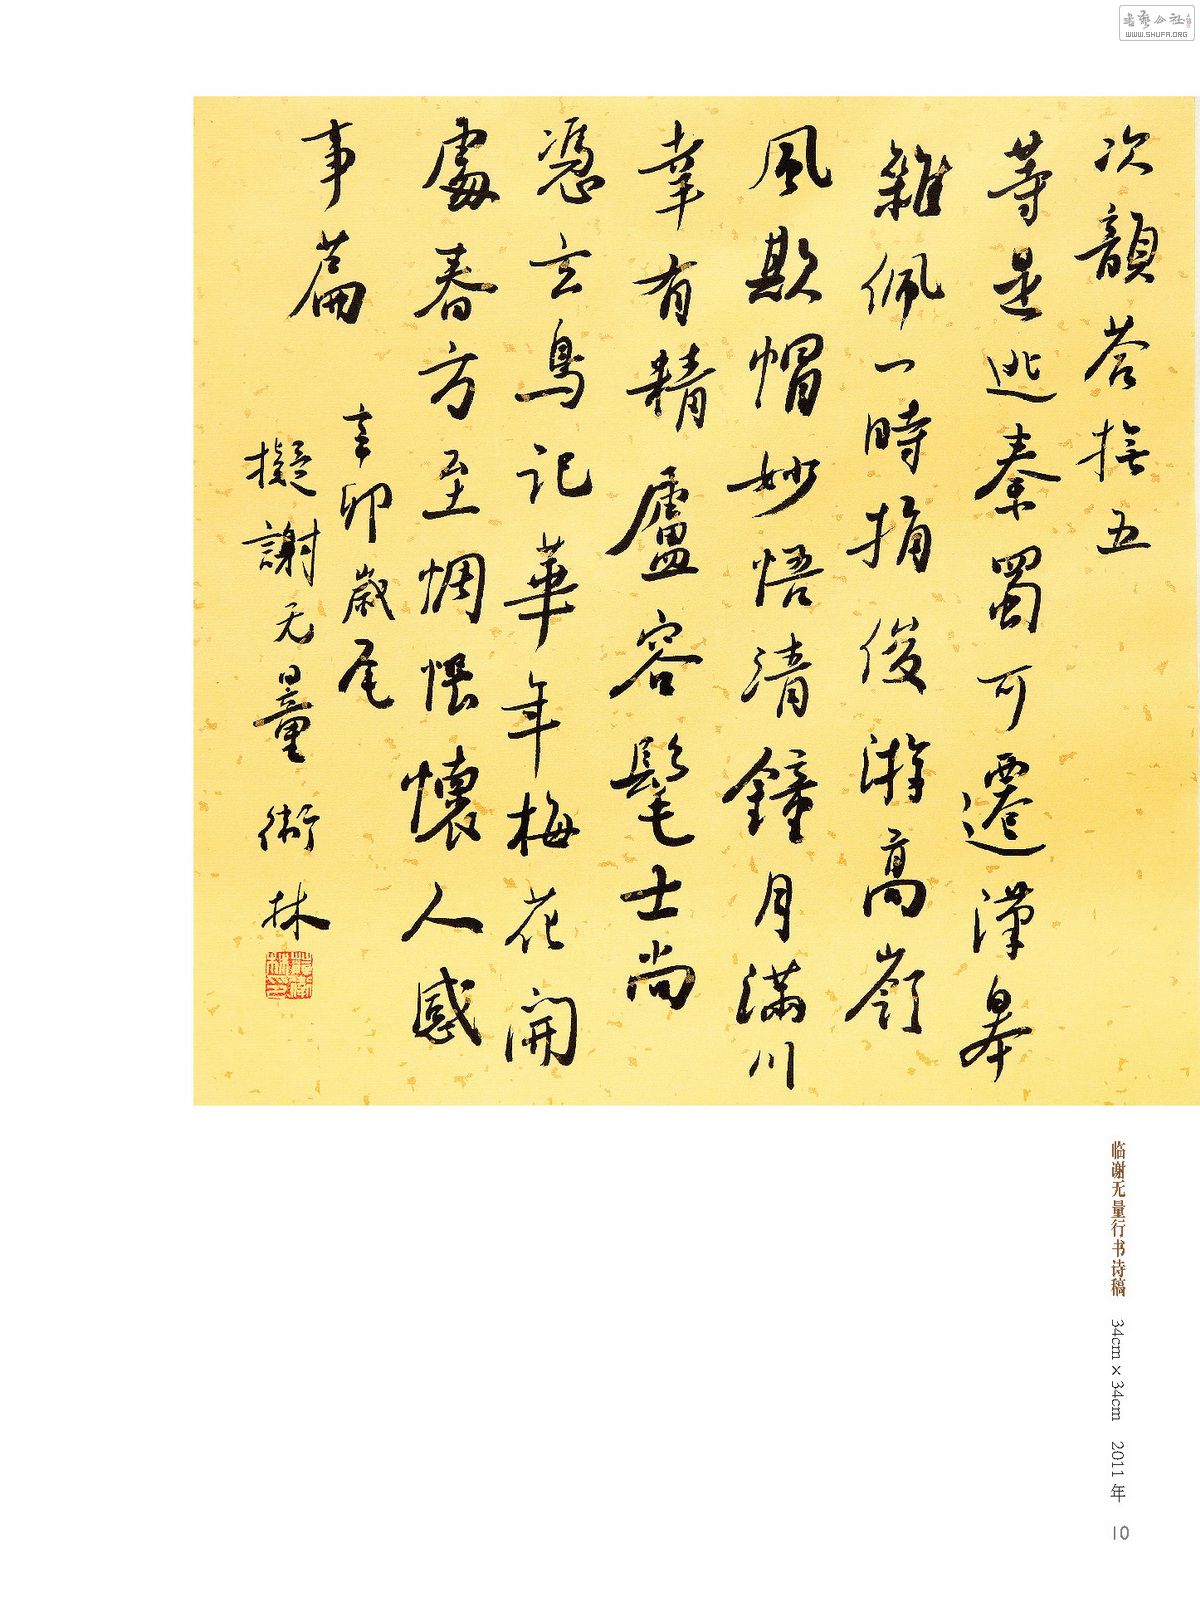 次韻荅撫五
等是逃秦蜀可遷漢皋
雜佩一時捐俊游高嶺
風欺帽妙悟清鐘月滿川
幸有精廬容髦士尚
憑玄鳥記華年梅花開
處春方至惆悵懷人感
事篇
辛卯歲尾
擬謝无量術林
临谢无量行书诗稿 34cm×34cm 2011年
10
WWW.SHUFA.ORG